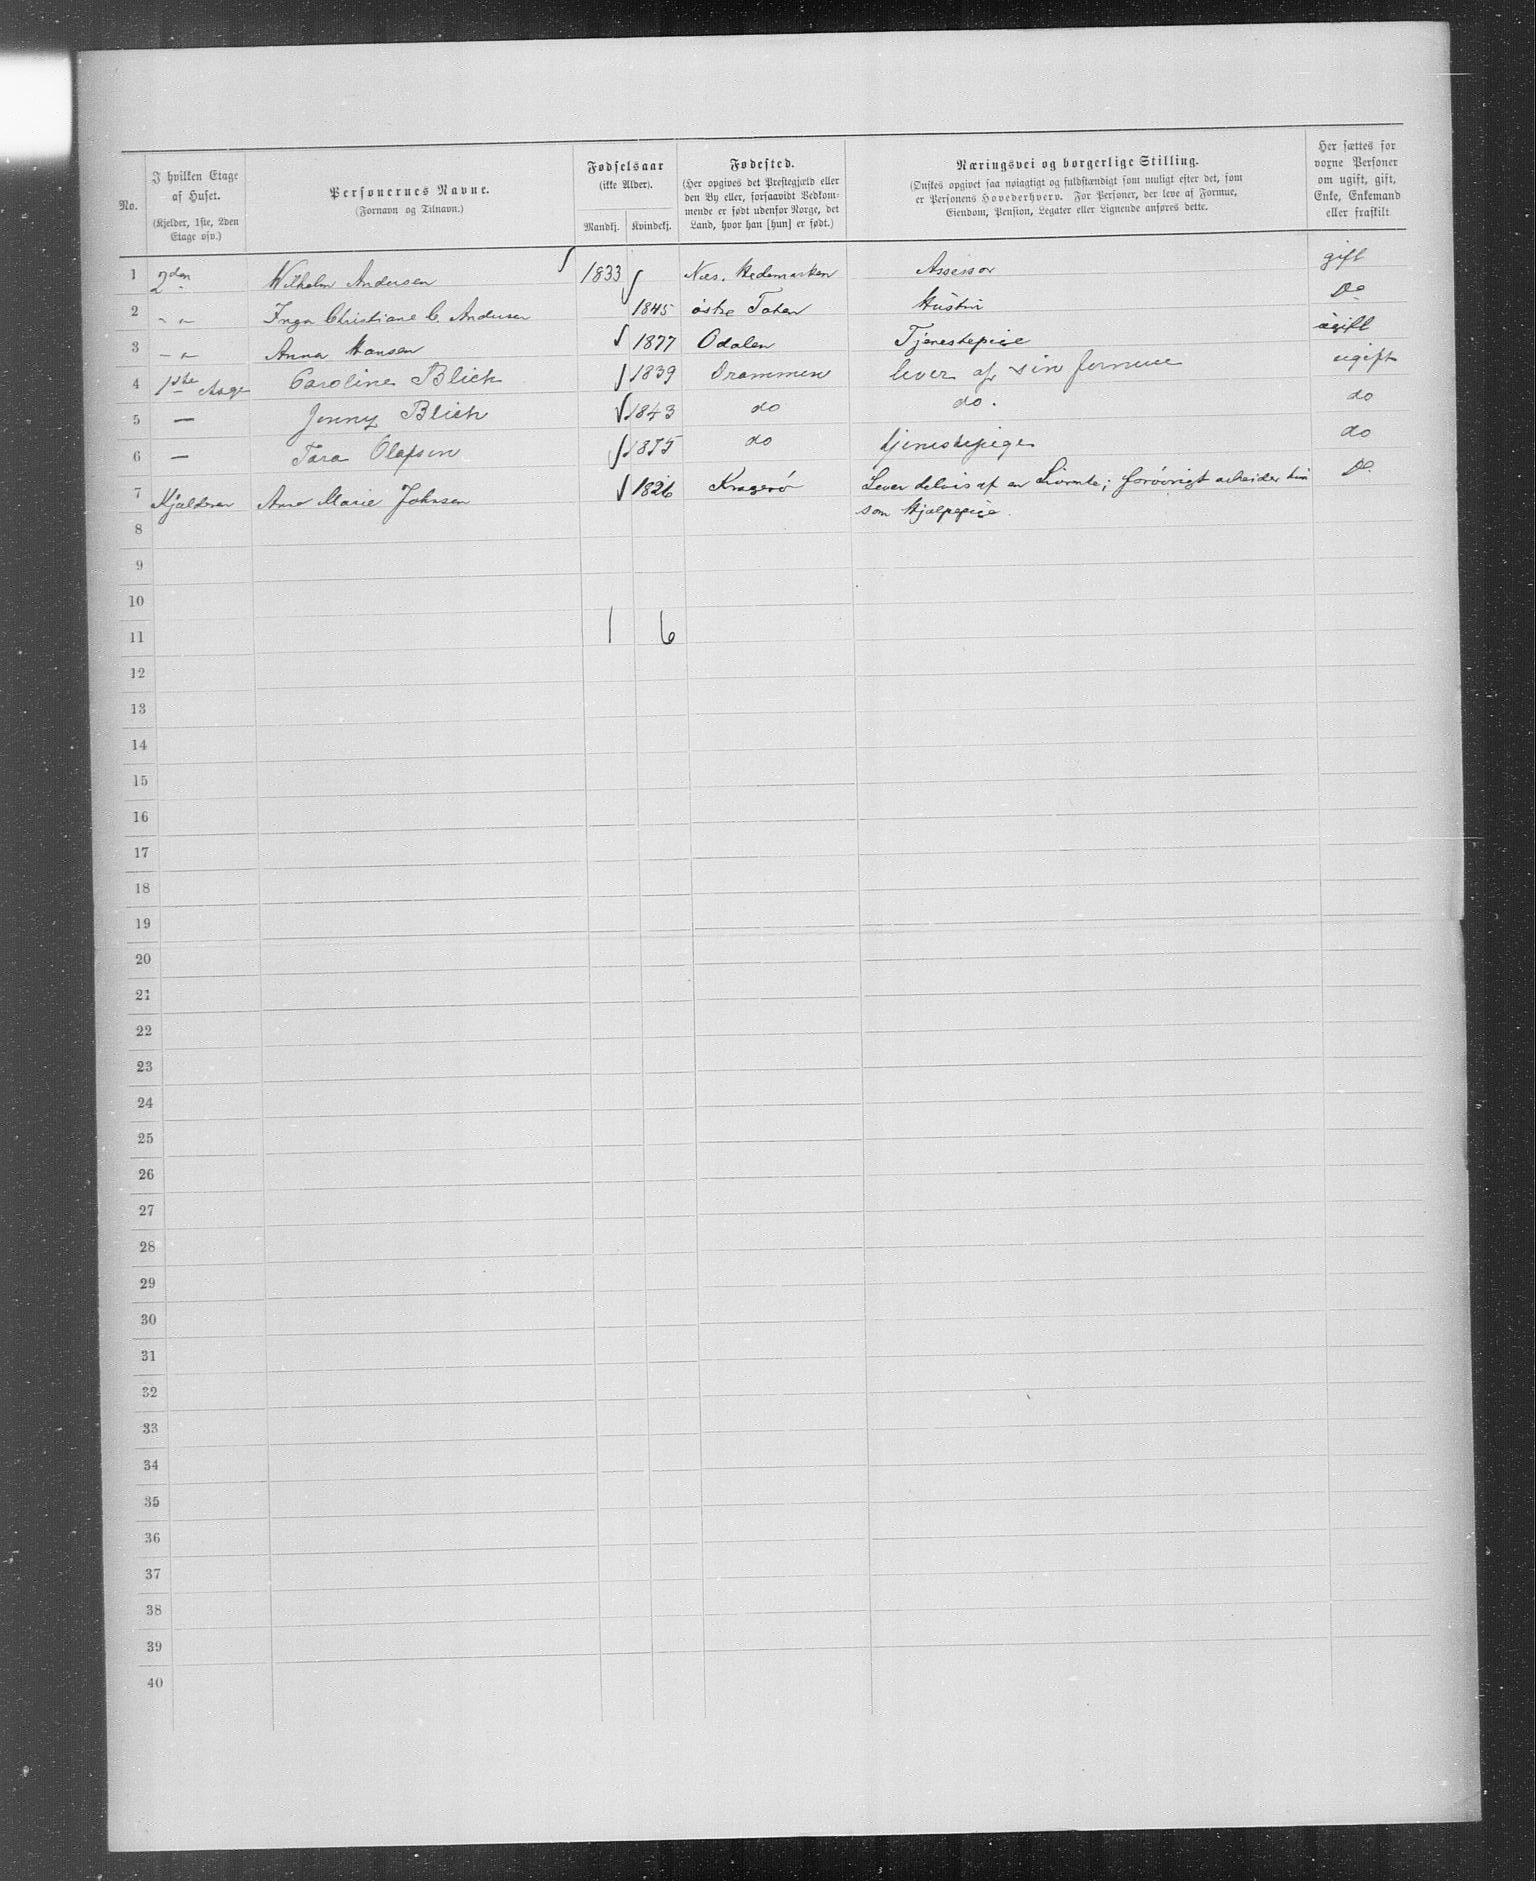 No. I hvilken Etage af Huset. (Kjelder, 1ste, 2den Etage osv.) Personernes Navne. (Fornavn og Tilnavn.) Fødselsaar (ikke Alder). Mandkj. Kvindekj. Fødested. (Her opgives det Prestegjæld eller den By eller, forsaavidt Vedkommende er født udenfor Norge, det Land, hvor han [hun] er født.) Næringsvei og borgerlige Stilling. (Ønskes opgivet saa nøiagtigt og fuldstændigt som muligt efter det, som er Personens Hovederhverv. For Personer, der leve af Formue, Eiendom, Pension, Legater eller Lignende anføres dette. Her sættes for voxne Personer om ugift, gift, Enke, Enkemand eller fraskilt
1 2den Wilhelm Andersen 1833 Næs, Hedemarken Assessor gift
2 - " - Inga Christiane C. Andersen 1845 östre Toten Hustru Do
3 - " - Anna Hansen 1877 Odalen Tjenestepige ugift
4 1ste Etage Caroline Blich 1839 Drammen lever af sin formue ugift
5 — Jenny Blich 1843 do do. do
6 — Tara Olafsen 1875 do tjenestepige do
7 Kjælderen Ane Marie Johnsen 1826 Kragerö Lever delvis af en Livrente; forövrigt arbeider hun Do.
som Hjælpepige.
8
9
10
11 1 6
12
13
14
15
16
17
18
19
20
21
22
23
24
25
26
27
28
29
30
31
32
33
34
35
36
37
38
39
40